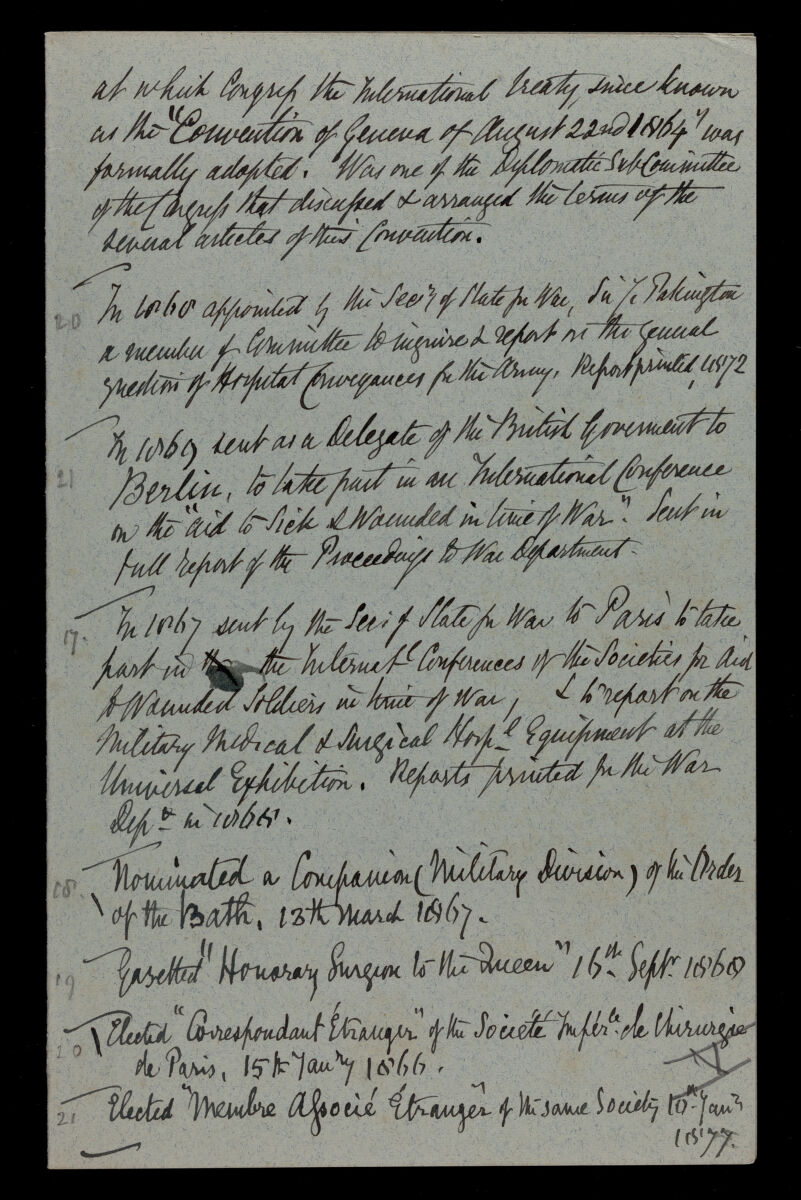 at which Congress the International treaty, since known
as the "Convention of Geneva of August 22nd 1864" was
formally adopted. Was one of the Diplomatic SubCommittee
of the Congress that discussed & arranged the terms of the
several articles of this Convention.
20 In 1868 appointed by the Secy of State for War, Sir J. Pakington
a member of Committee to inquire & report on the general
question of Hospital Conveyances for the Army. Report printed, 1872
21 In 1869 sent as a Delegate of the British Goverment to
Berlin, to take part in an International Conference
on the "Aid to Sick & Wounded in time of War". Sent in
full report of the Proceedings to War Department.
17. In 1867 sent by the Secy of State for War to Paris to take
part in the Internatl Conferences of the Societies for Aid
to Wounded Soldiers in time of War, & to report on the
Military Medical & Surgical Hospl Equipment at the
Universal Exhibition. Reports printed for the War
Dept in 1868.
18. Nominated a Companion (Military Division) of the Order
of the Bath, 13th March 1867.
19 Gazetted "Honorary Surgeon to the Queen" 16th Septr 1868
20 Elected "Correspondant Étranger" of the Société Impérle de Chirurgie
de Paris, 15th Janry 1866.
21 Elected "Membre Associé Étranger" of the same Society Jany
1877.